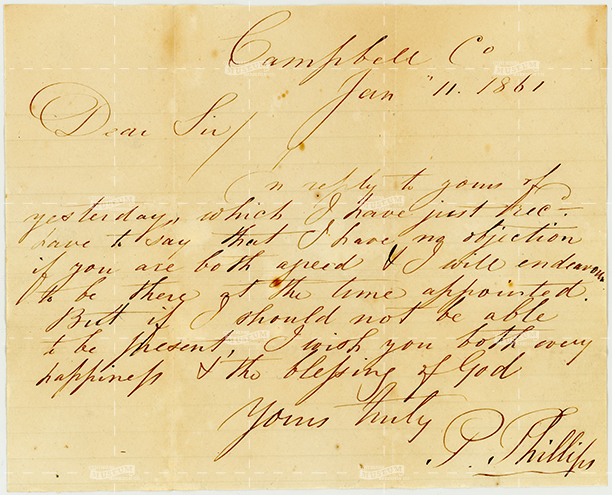 Campbell Co
Jan " 11. 1861
Dear Sir/
In reply to yours of
yesterday, which I have just recd.
have to say that I have no objection
if you are both agreed & I will endeavour
to be there at the time appointed.
But if I should not be able
to be present, I wish you both every
happiness & the blessing of God
Yours truly
P. Phillips